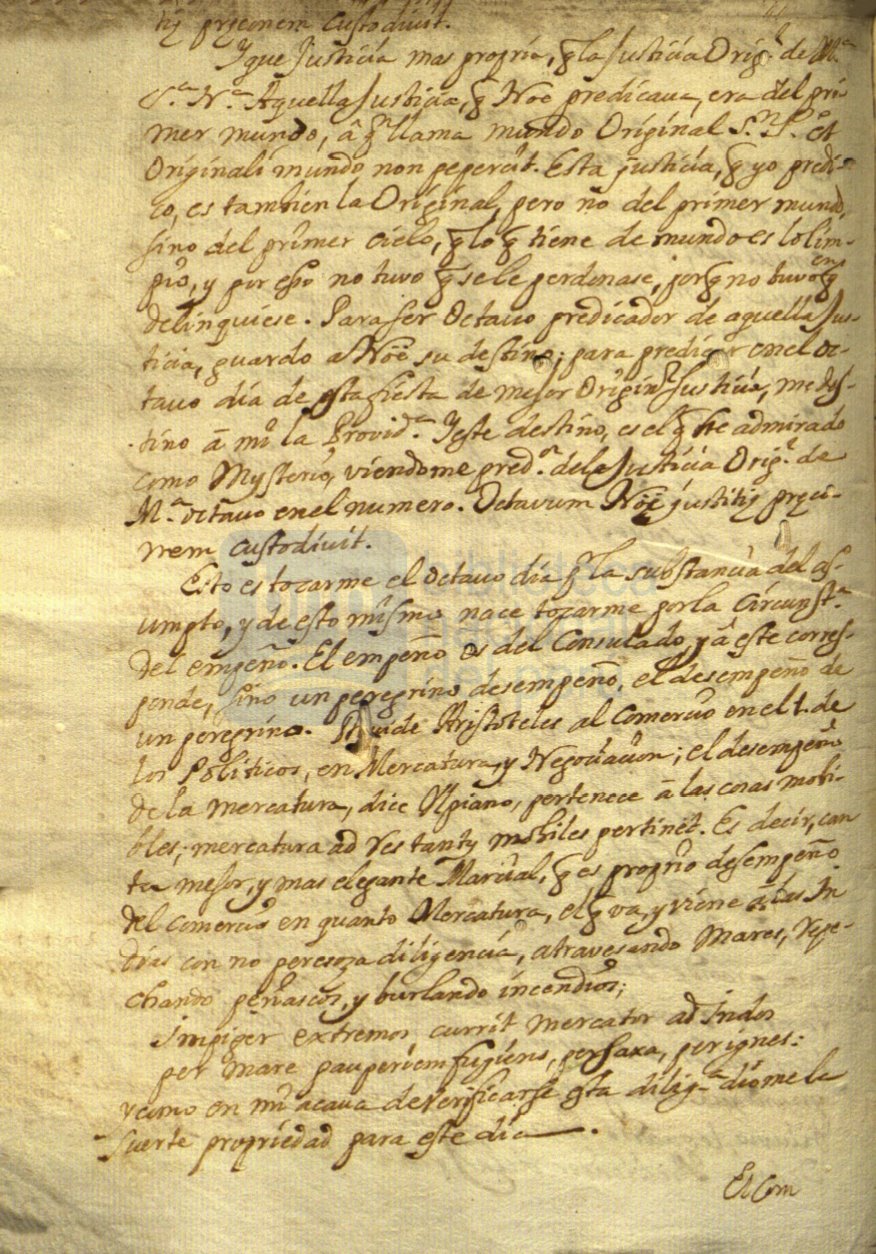 tiȩ prȩconem custodivit.
Y que Justicia mas propria, q̃ la Justicia Orig.l de M.a
S.a N.a Aquella Justicia, q̃ Noè predicava, era del pri-
mer mundo, â q.n llama mundo Original S.n P.o et
Originali mundo non pepercit. Esta justicia, q̃ yo predi-
co, es tambien la Original, pero nõ del primer mundo,
sino del primer cielo, q̃ lo q̃ tiene de mundo es lo lim-
pio, y por esso no tuvo q̃ se le perdonase, porq̃ no tuvo en q̃
delinquiese. Para ser Octavo predicador de aquella Jus-
ticia, guardo a Noè su destino; para predicar en el oc-
tavo dia de esta fiesta de mejor Origin.l Justicia, me des-
tino â mi la Provid.a Y este destino, es el q̃ he admirado
como Mysterio, viendome pred.r de la Justicia Orig.l de
M.a octavo en el numero. Octavum Noè justitiȩ prȩco-
nem custodivit.
Esto es tocarme el octavo dia p.r la substancia del as-
umpto, y de esto mismo nace tocarme por la circunst.a
del empeño. El empeño es del Consulado, y â este corres-
ponde, sino un peregrino desempeño, el desempeño de
un peregrino. Divide Aristoteles al Comercio en el 1. de
los Politicos, en Mercatura, y Negociacion; el desempeño
de la mercatura, dice Ulpiano, pertenece â las cosas mobi-
bles; mercatura ad res tantȳ mobiles pertinet. Es decir, can
ta mejor, y mas elegante Marcial, q̃ es proprio desempeño
del comercio en quanto Mercatura, el q̃ va, y viene a las In
dias con no peresoza diligencia, atravesando Mares, repe-
chando peñascos, y burlando incendios;
Impiger extremos, currit mercator ad Indos
per mare pauperiem fugiens, per saxa, per ignes:
y como en mi acava de verificarse esta dilig.a diome la
suerte propriedad para este dia.
El Com